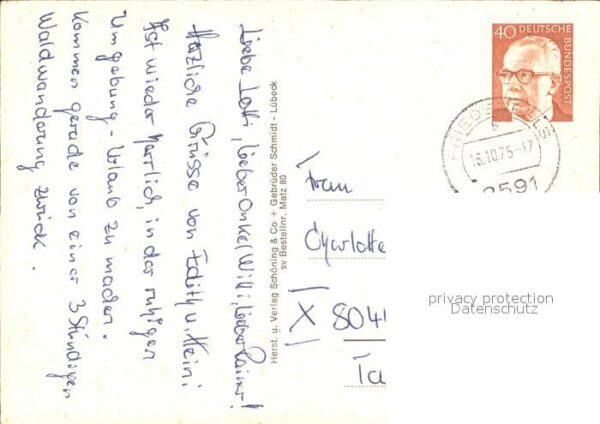 Liebe Lotti, lieber Onkel Willi, lieber Rainer!
Herzliche Grüsse von Edith u. Heini
Ist wieder herrlich, in der ruhigen
Umgebung - Urlaub zu machen.
Kommen gerade von einer 3 Stündigen
Waldwanderung zurück.
Herst. u. Verlag Schöning & Co + Gebrüder Schmidt - Lübeck
sv Bestellnr. Matz 80
40 DEUTSCHE BUNDESPOST
16.10.75-17
2591
Frau
Charlotte
X 804
Ta
privacy protection
Datenschutz